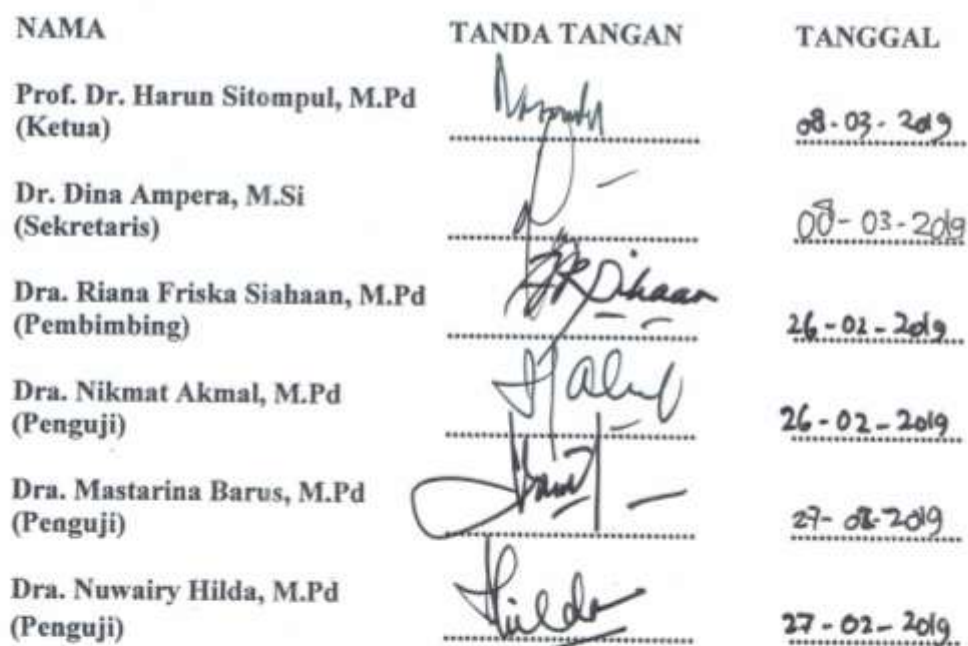 NAMA TANDA TANGAN TANGGAL
Prof. Dr. Harun Sitompul, M.Pd
(Ketua) 08-03-2019
Dr. Dina Ampera, M.Si
(Sekretaris) 08-03-2019
Dra. Riana Friska Siahaan, M.Pd
(Pembimbing) 26-02-2019
Dra. Nikmat Akmal, M.Pd
(Penguji) 26-02-2019
Dra. Mastarina Barus, M.Pd
(Penguji) 27-02-2019
Dra. Nuwairy Hilda, M.Pd
Hilda
(Penguji) 27-02-2019